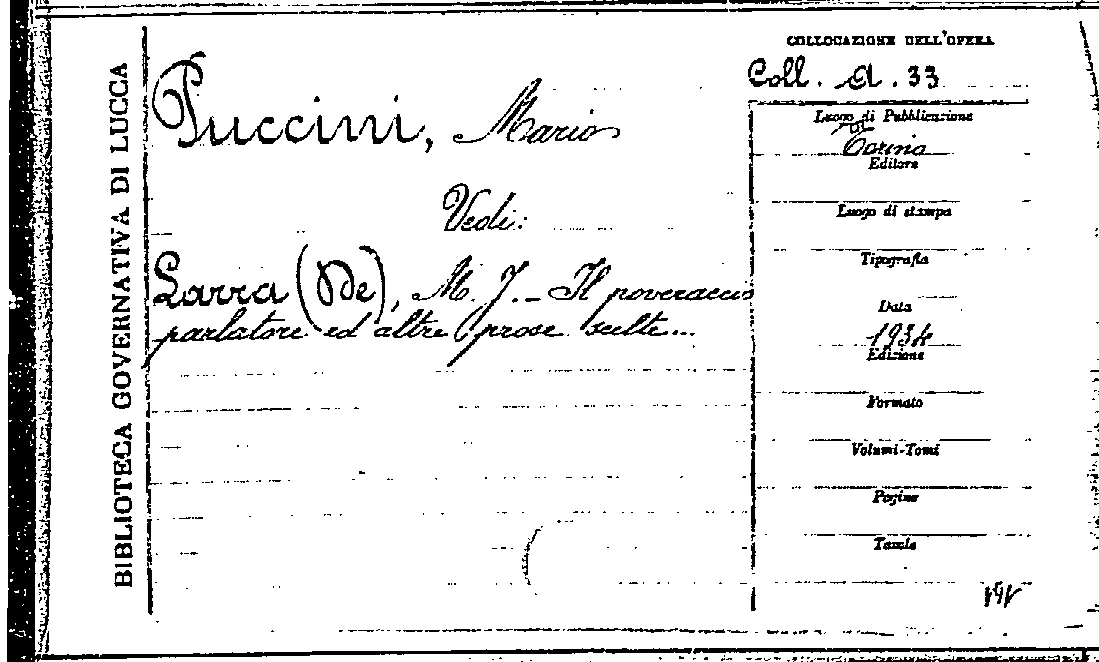 BIBLIOTECA GOVERNATIVA DI LUCCA
Puccini, Mario
Vedi:
Larra (De), M. J. - Il poveraccio
parlatore ed altre prose scelte...
COLLOCAZIONE DELL'OPERA
Coll. A. 33
Luogo di Pubblicazione
Torino
Editore
Luogo di stampa
Tipografia
Data
1934
Edizione
Formato
Volumi-Tomi
Pagine
Tavole